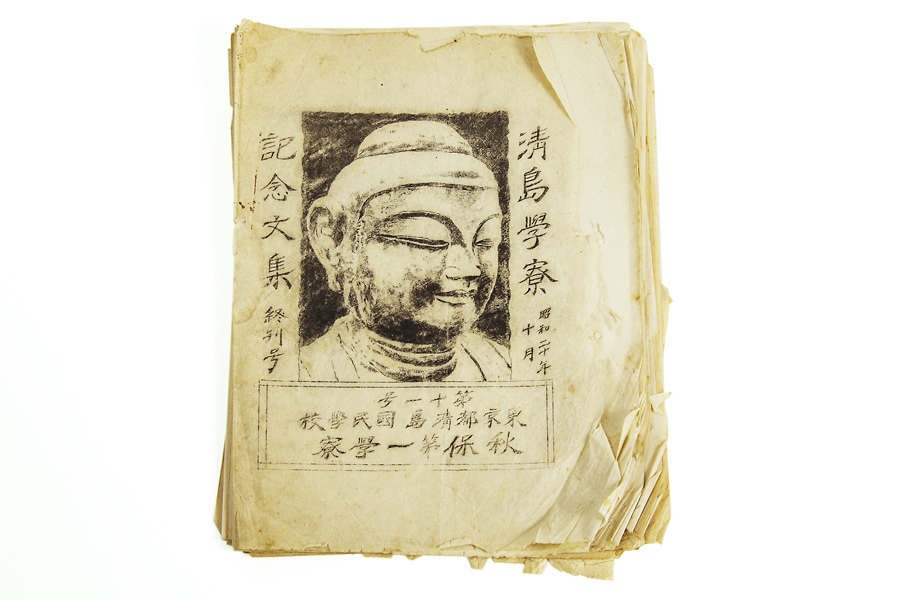 清島學寮
昭和二十年
十月
記念文集
終刊号
第十一号
東京都清島國民學校
秋保第一學寮